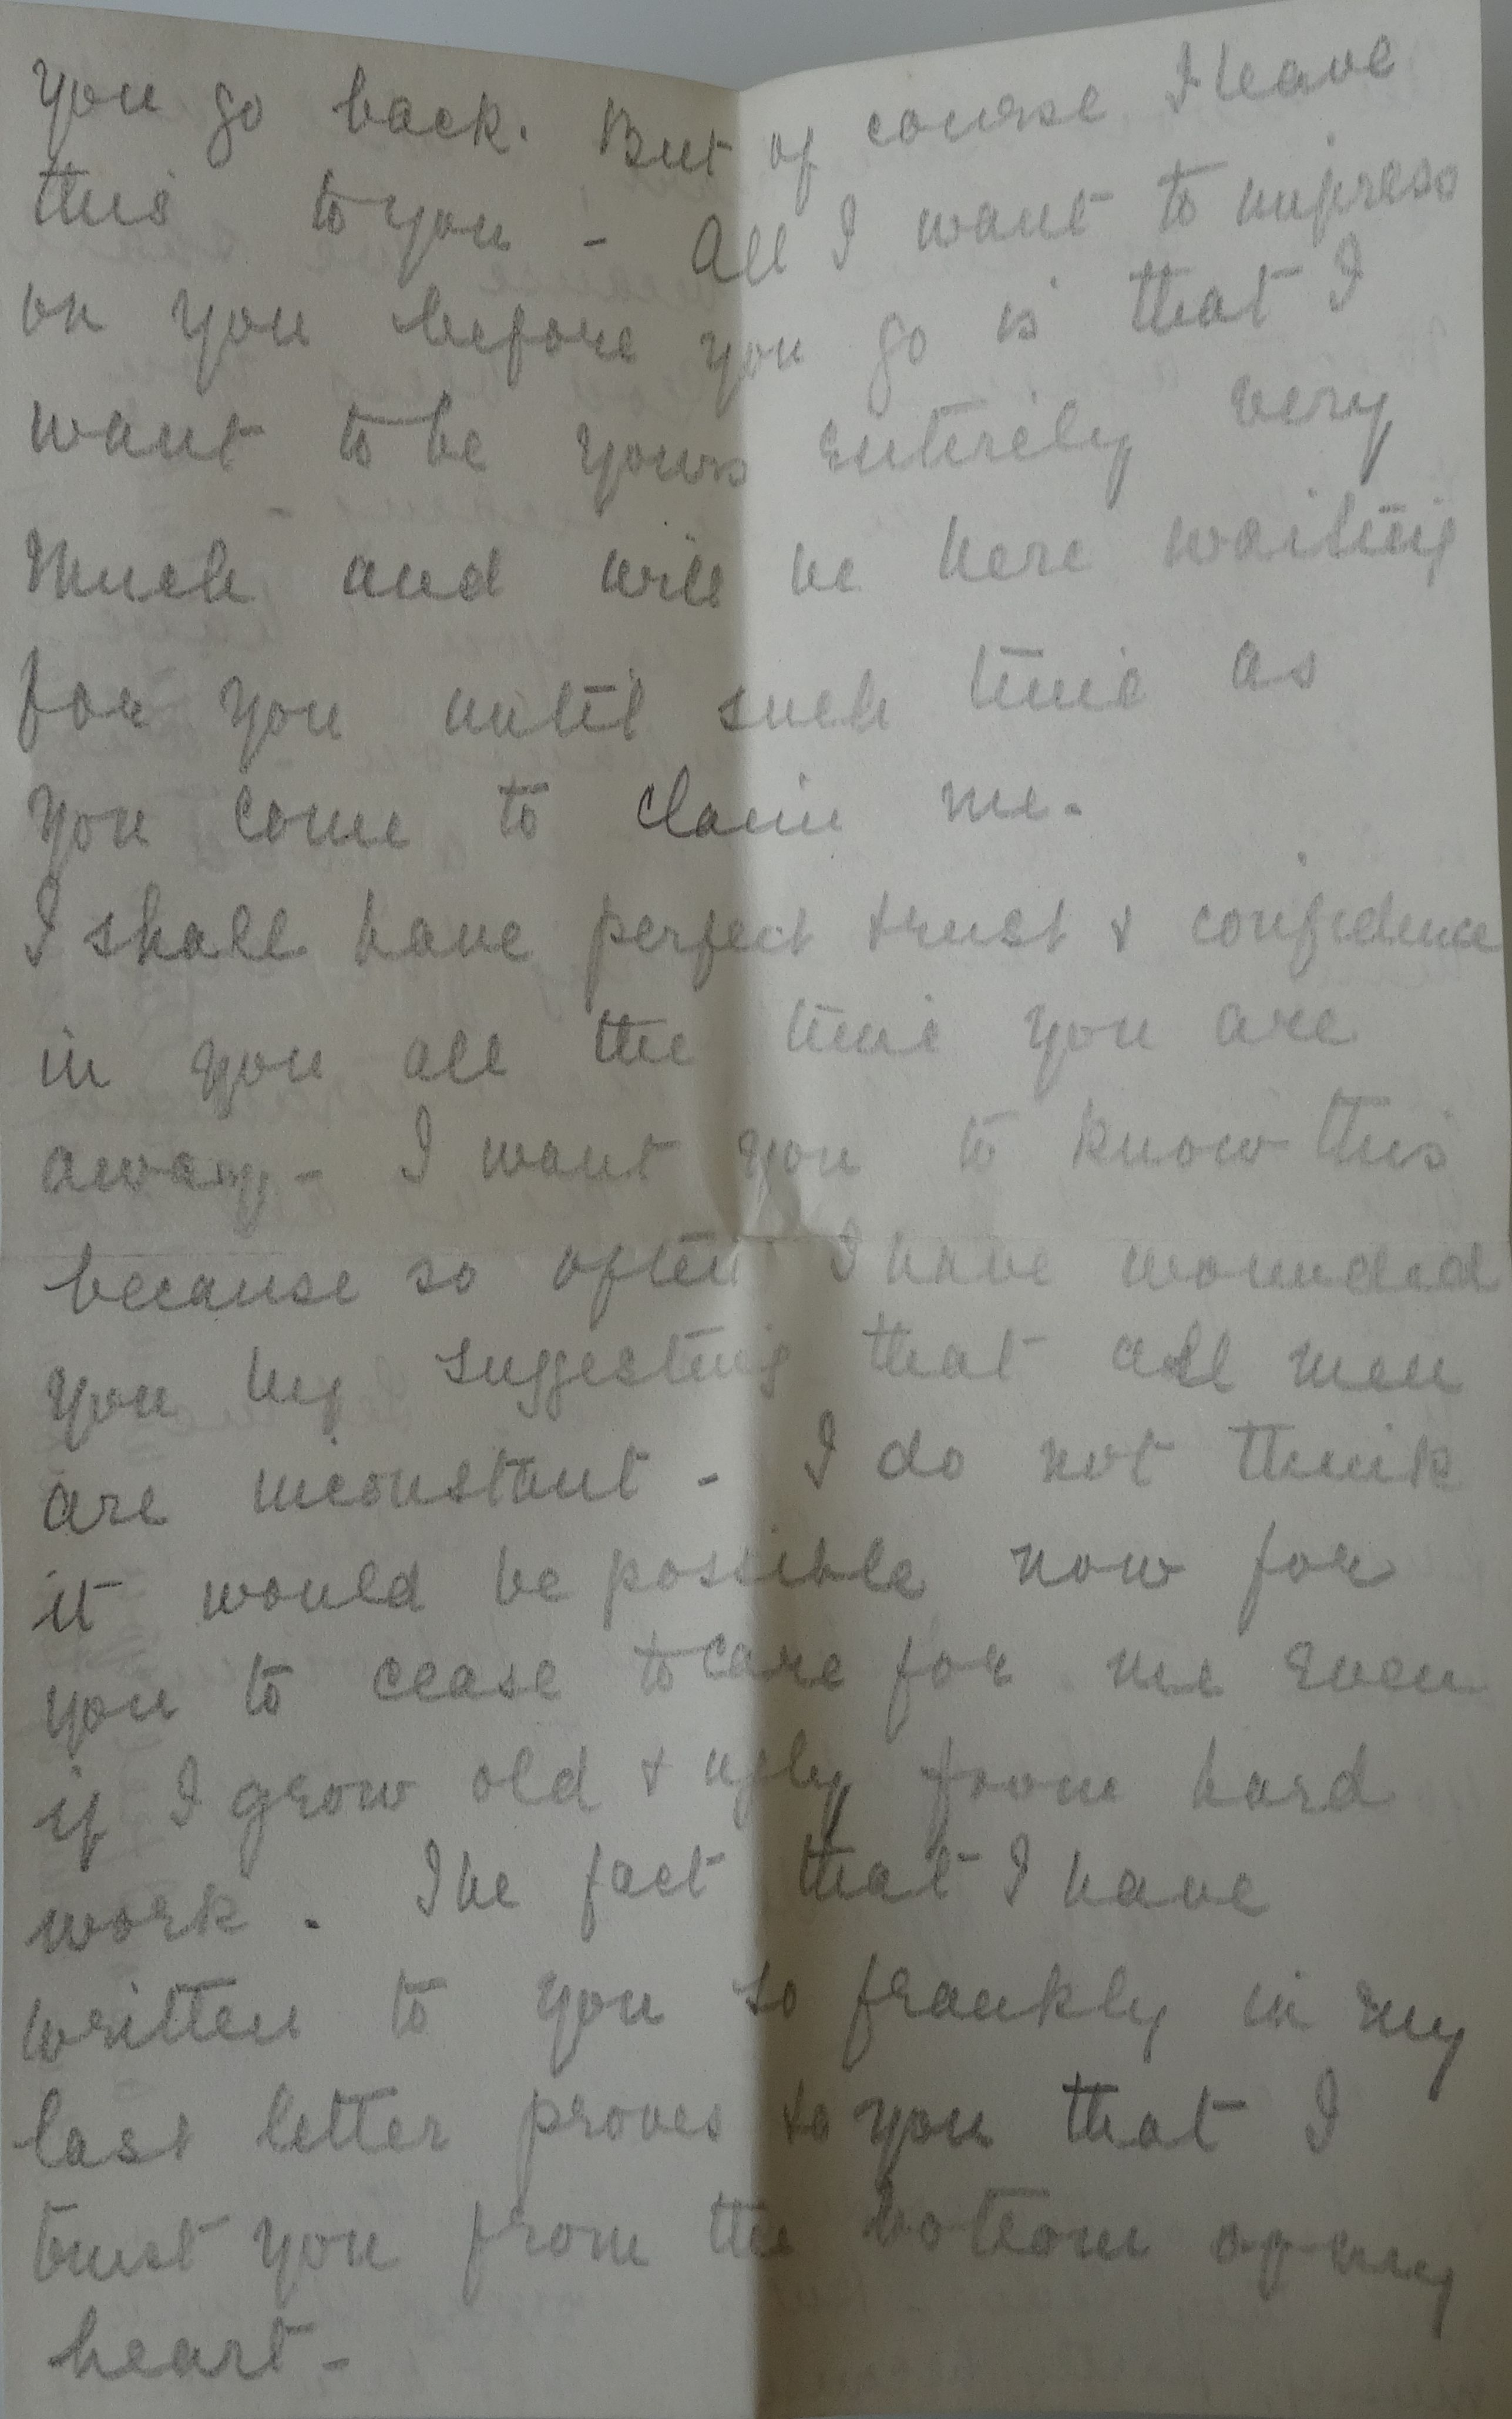 you go back. But of course I leave
this to you - All I want to impress
on you before you go is that I
want to be yours entirely very
much and will be here waiting
for you until such time as
you come to claim me.
I shall have perfect trust & confidence
in you all the time you are
away - I want you to know this
because so often I have wounded
you by suggesting that all men
are inconstant - I do not think
it would be possible now for
you to cease to care for me even
if I grow old & ugly from hard
work. The fact that I have
written to you so frankly in my
last letter proves to you that I
trust you from the bottom of my
heart -